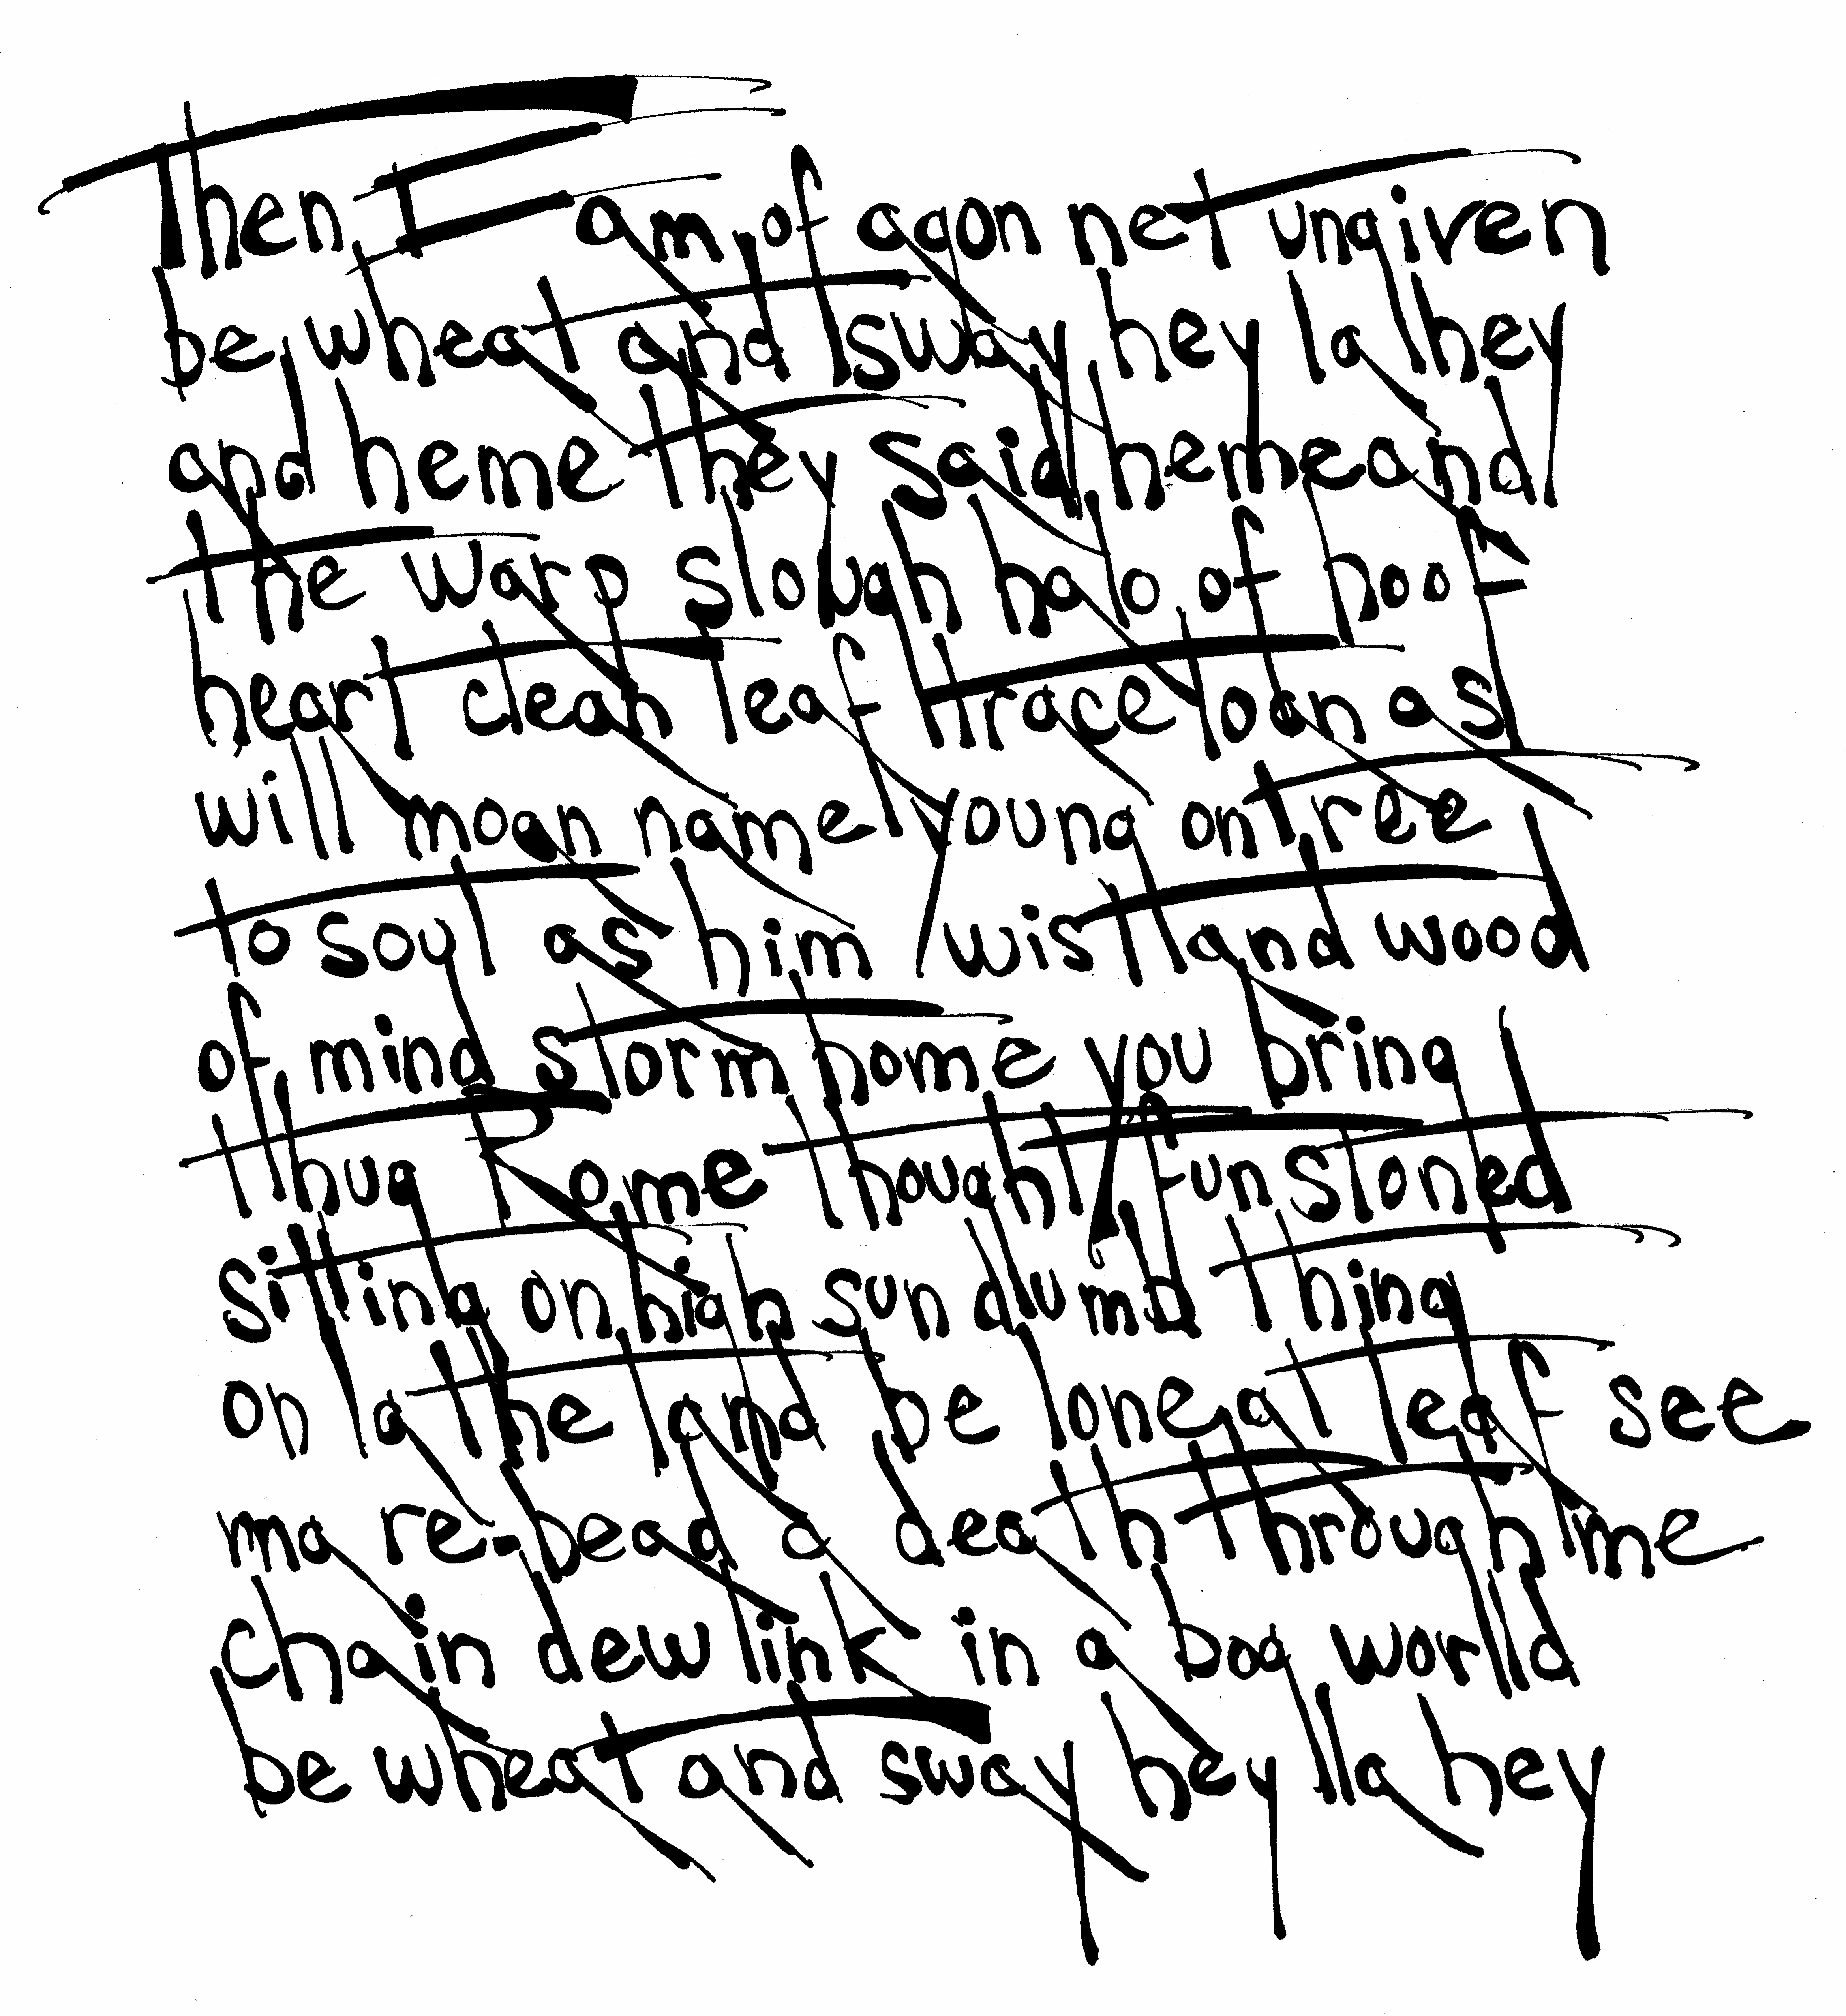 Then I am of agon net ungiven
be wheat and sway hey la hey
and heme they said heme and
the warp slough halo of hoof
heart clean leaf trace loan as
will moan name young on tree
to soul as him wist land wood
of mind storm home you bring
thug Rome thought fun stoned
sitting on high sun dumb thing
on la the land be lone at leaf see
ma re-bead a death through me
chain dew link in a bog world
be wheat and sway hey la hey